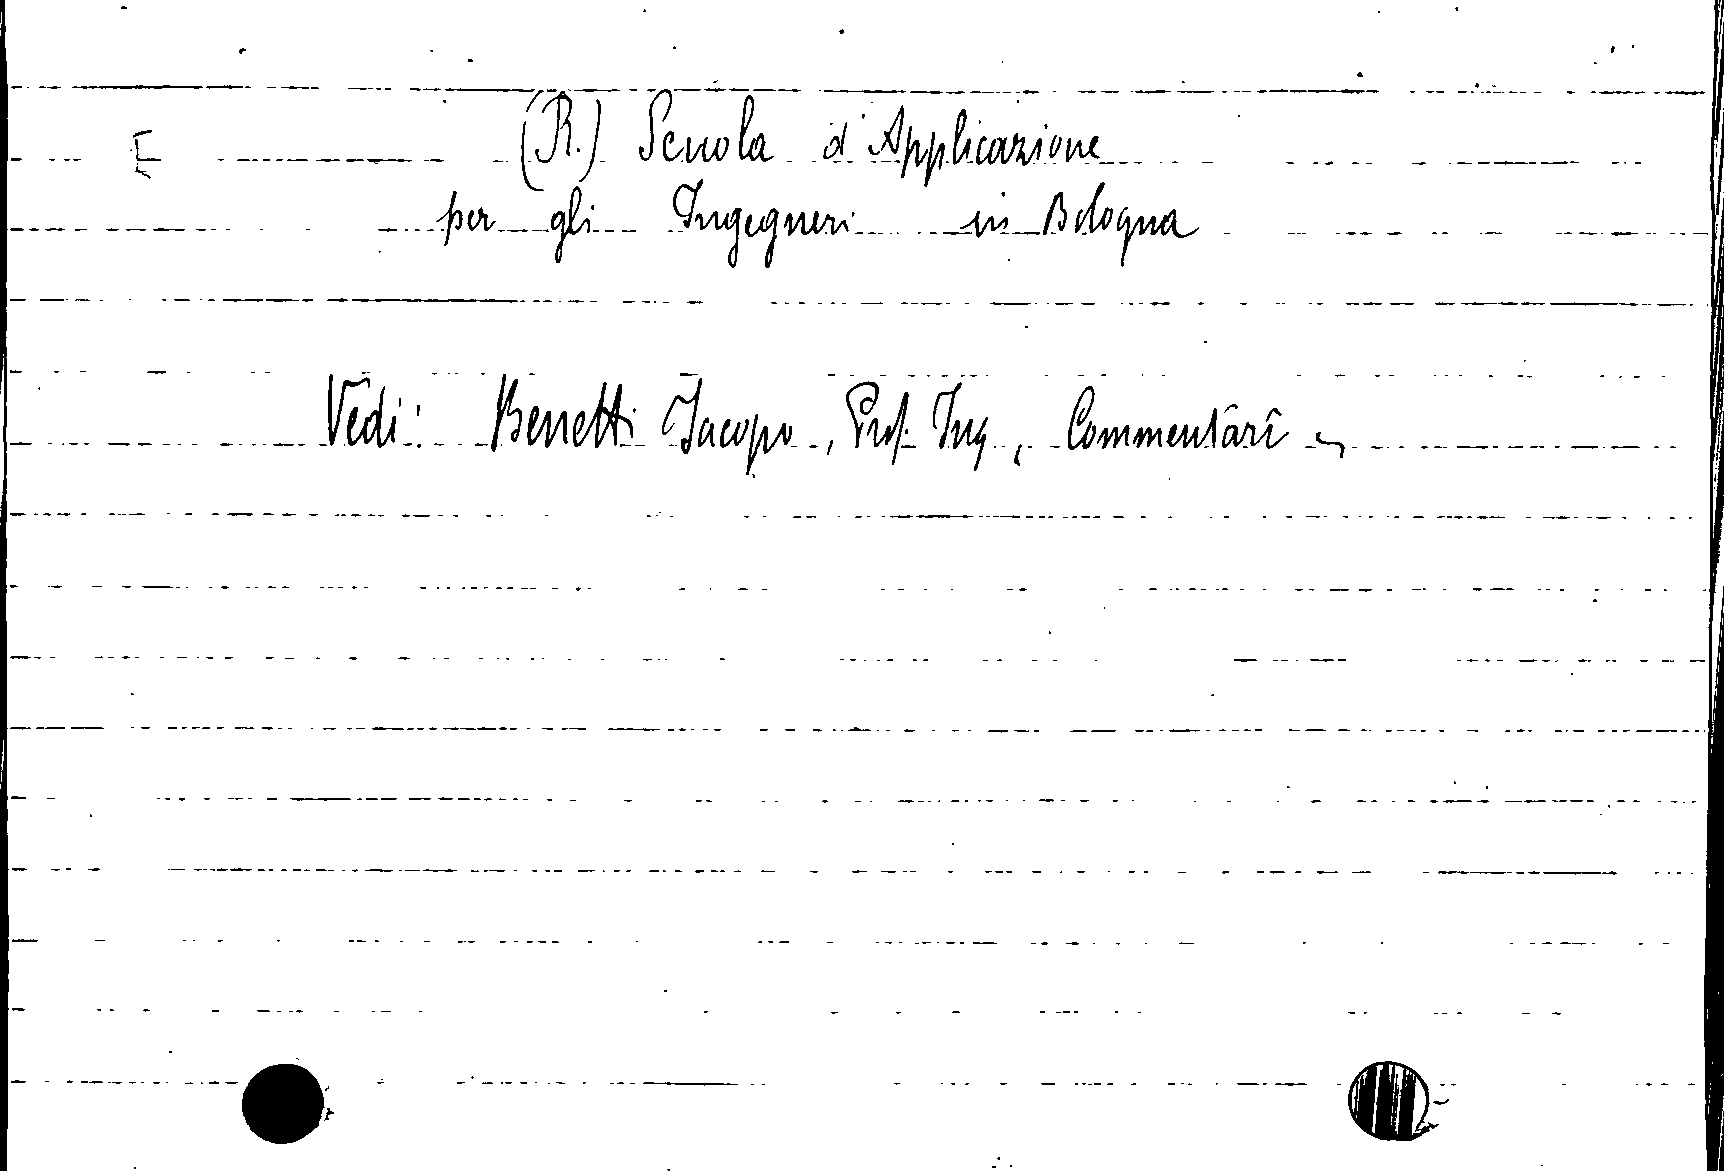 E (R.) Scuola d'Applicazione
per gli Ingegneri in Bologna
Vedi: Benetti Jacopo, Prof. Ing, Commentarî